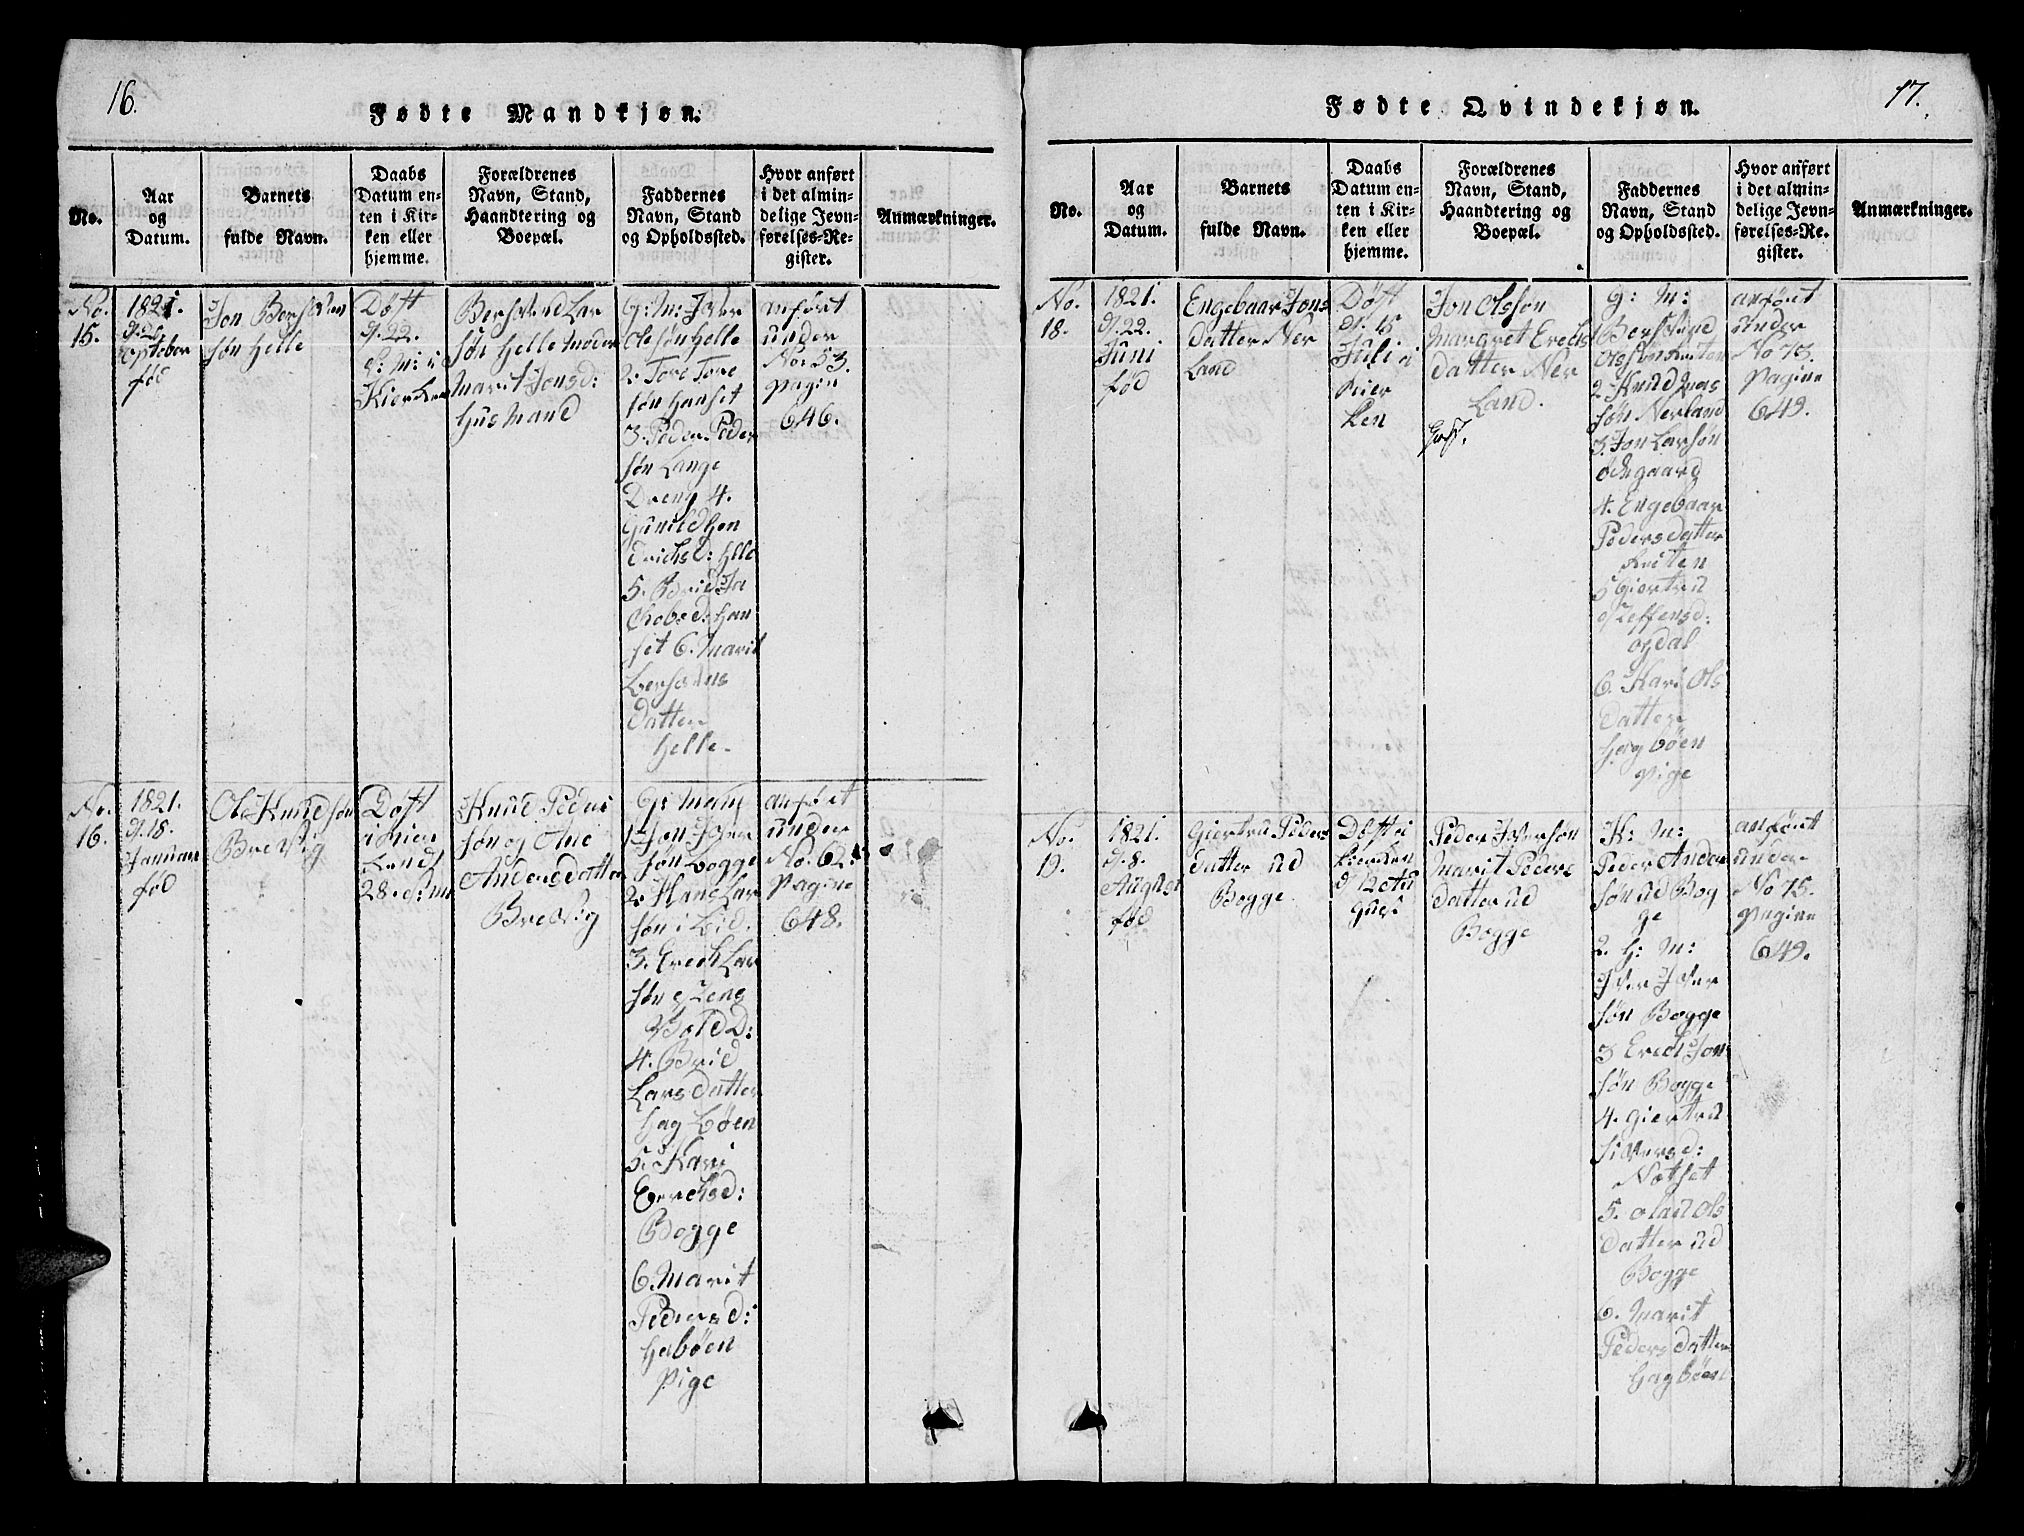 16.
Fødte Mandkjøn.
No.
Aar
og
Datum.
Barnets
fulde Navn.
Daabs
Datum en-
ten i Kir-
ken eller
hjemme.
Forældrenes
Navn, Stand,
Haandtering og
Boepæl.
Faddernes
Navn, Stand
og Opholdssted.
Hvor anført
i det almin-
delige Jevn-
førelses-Re-
gister.
Anmærkninger.
No.
15.
1821.
fød
Jon
søn Helle
Døft
d. 22.
Lar
søn Helle Moder
Marit Jonsd:
Husmand
G: M: Iver
Olesøn Helle
2. Tore Tore
søn Hanset
3. Peder Peder
søn Lange
Dreng 4.
Erichsd: Helle
5. Brid Ja
kobsd: Han
set 6. Marit
datter
Helle.
anført
under
No. 53.
pagin
646.
No.
16.
1821.
d. 18.
Januari
fød
Ole Knudsøn
Brevig
Døft
28. d: m
Knud Peder
søn og Ane
Andersdatter
Brevig
G: Mam
1 Jon Iver
søn Bogge
2. Hans Lar
søn i Lid.
3. Erech Lar
søn
4. Brid
Larsdatter
Hagbøen
5. Kari
Erechsd:
Bogge
6. Marit
Pedersd:
Habøen
Pige
anført
under
No. 62.
Pagine
648.
17.
Fødte Qvindekjøn.
No.
Aar
og
Datum.
Barnets
fulde Navn.
Daabs
Datum en-
ten i Kir-
ken eller
hjemme.
Forældrenes
Navn, Stand,
Haandtering og
Boepæl.
Faddernes
Navn, Stand
og Opholdssted.
Hvor anført
i det almin-
delige Jevn-
førelses-Re-
gister.
Anmærkninger.
No.
18.
1821.
d. 22.
Juni
fød
Engebaar Jons
datter Ner
Land
Døft
d. 15
Juli i
Kier
ken
Jon Olsson
Margret Erechs
datter Ner
Land.
G: M:
2. Knud
søn Nerland
3. Jon Larsøn
Ødegaard
4. Engebaar
Pedersdatter
5 Giertrud
Steffensd:
6. Kari Ols
datter
Hagbøen
Pige
anført
under
No 73.
Pagine
649.
No.
19.
1821.
d. 8.
August
fød
Giertru Peders
datter ud
Bogge
Døft i
Kierken
d 12 Au
gust
Peder Iversøn
Marit Peders
datter ud
Bogge
K: M:
Peder Ander
søn ud Bog
ge
2. H: M:
Iver Iver
søn Bogge
3 Erech Jon
søn Bogge
4. Giertrud
Siversd:
Nætset
5. Olau Ols
datter ud
Bogge
6. Marit
Pedersdatter
Hagbøen
anført
under
No 75.
Pagine
649.